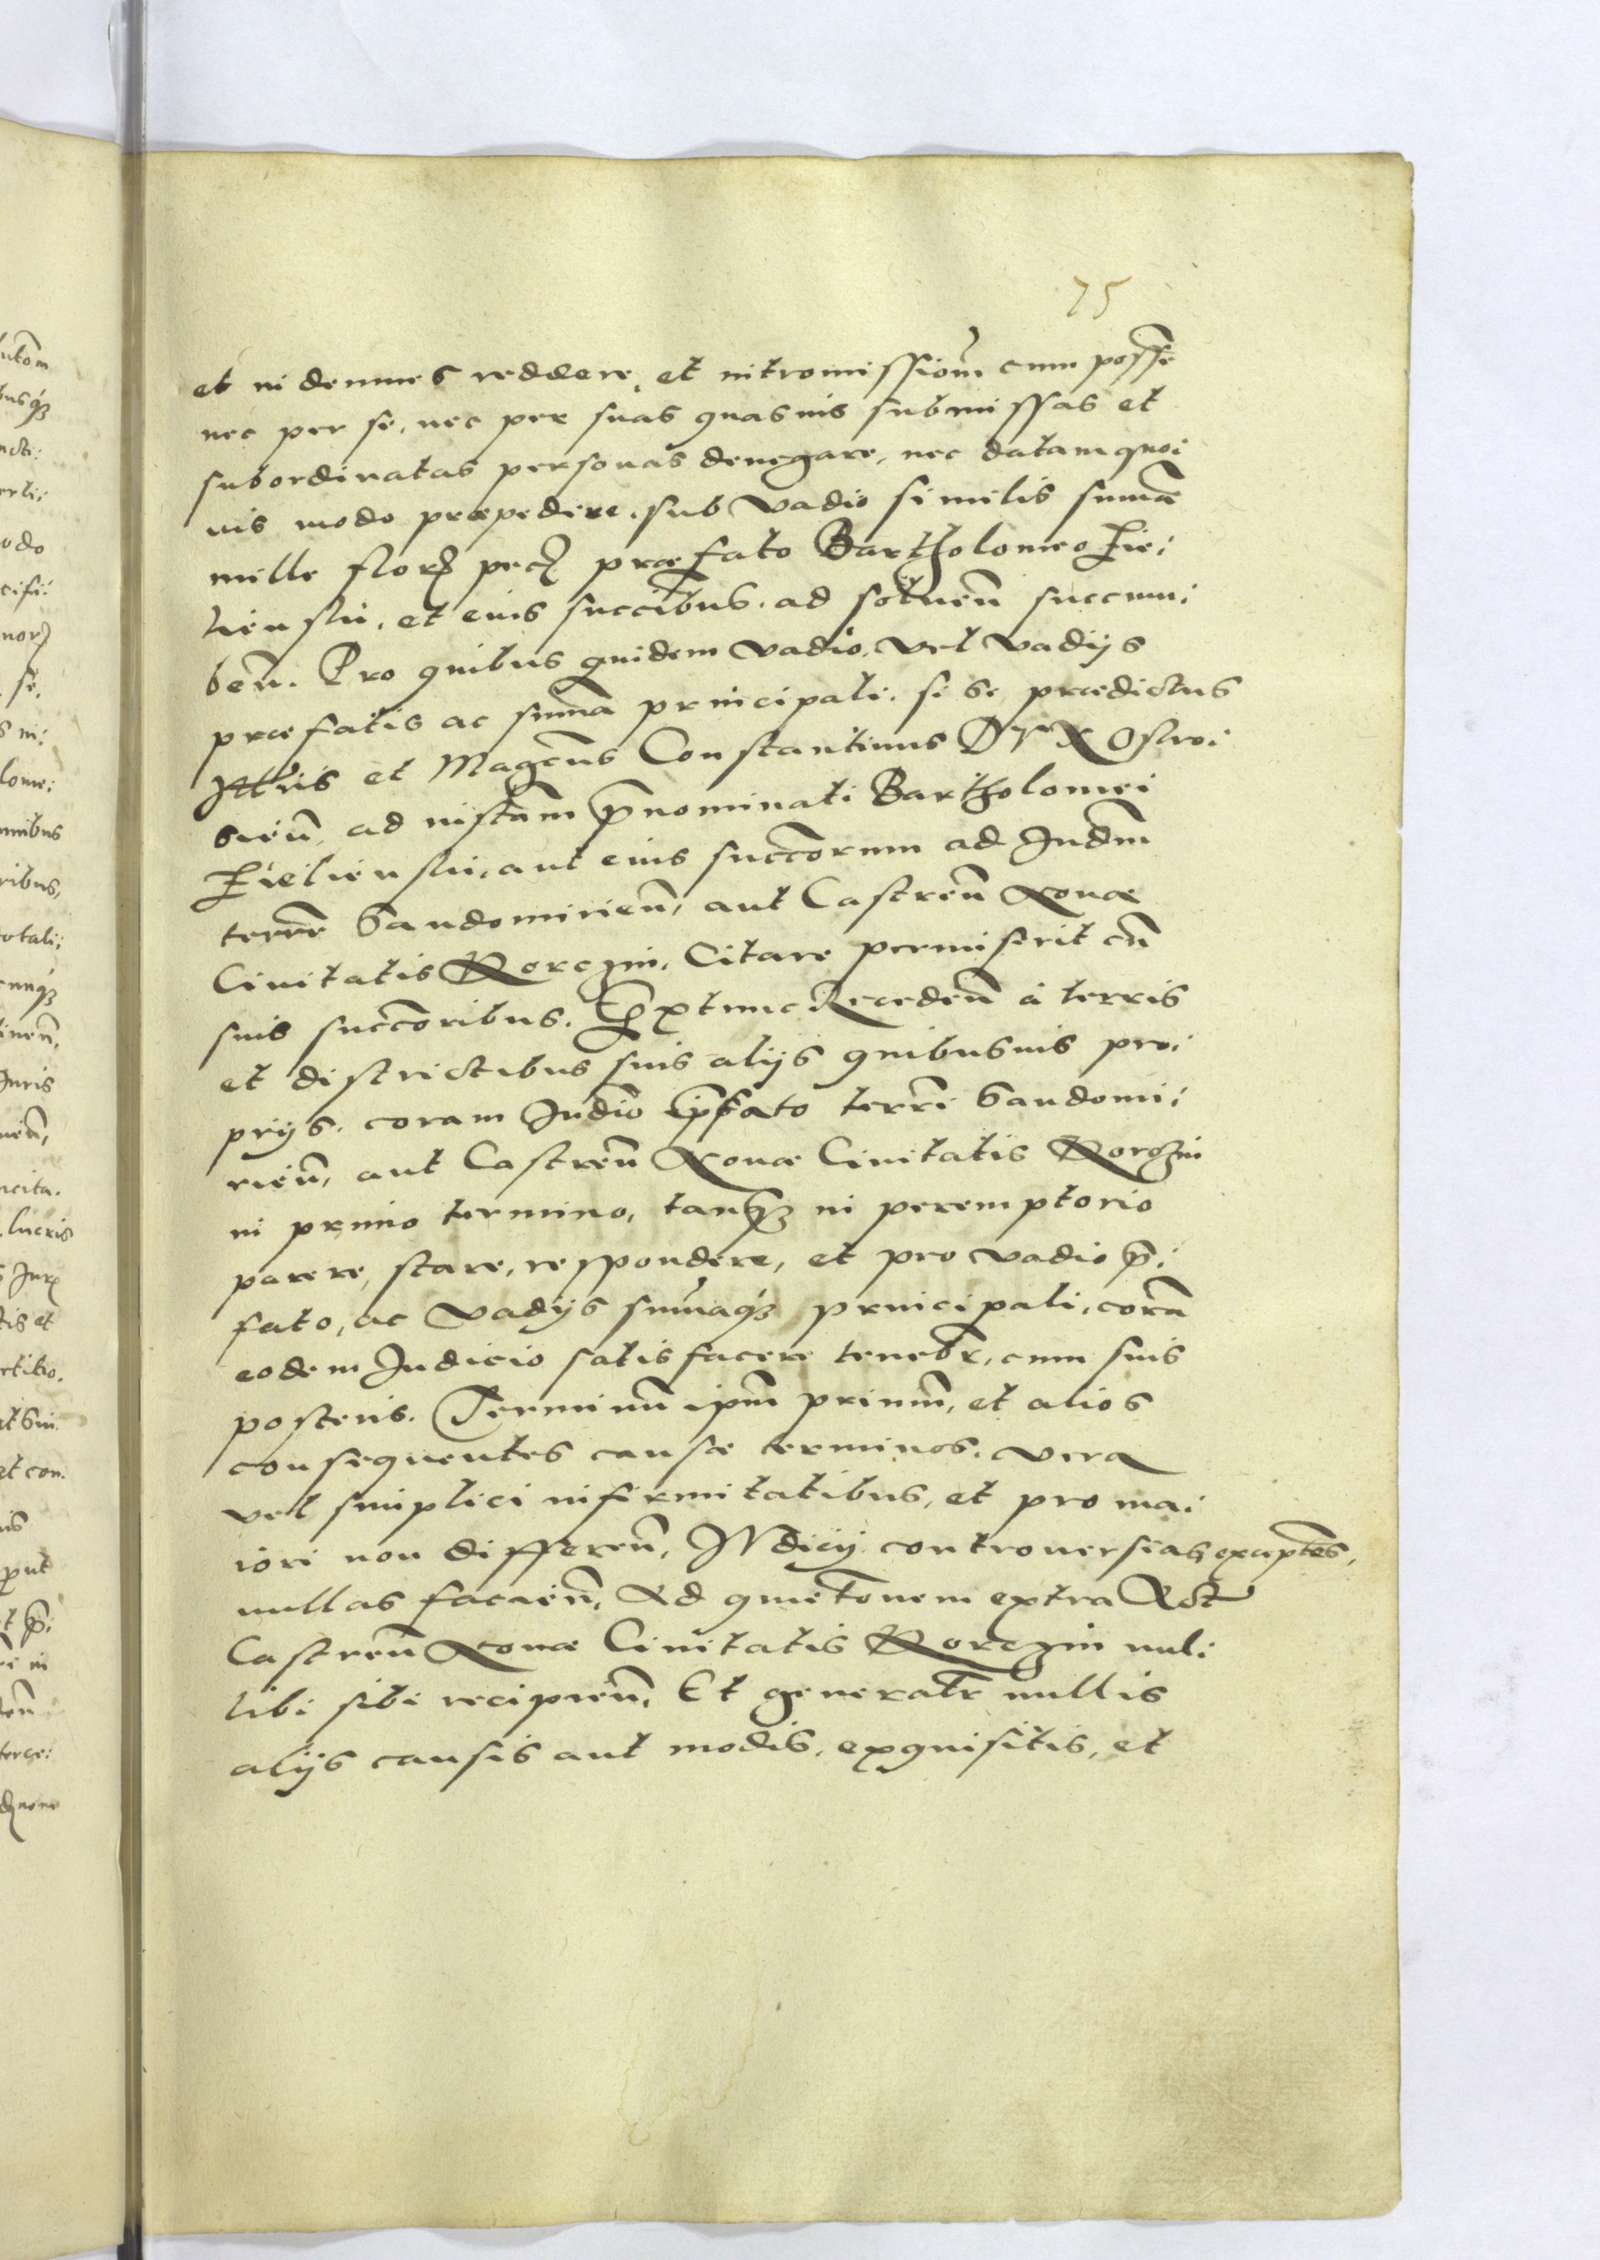 75
et indemnes reddere, et intromissiom̃ cum posse
nec per se, nec per suas quasuis submissas et
subordinatas personas denegare, nec datam quoi
uis modo præpedire. sub vadio similis summæ
mille flor pecũ præfato Bartholomeo Kie:
lienski, et eius succibus. ad soluen̄ succum:
ben̄. Pro quibus quidem vadio, vel vadijs
præfatis ac summa principali. si se prædictus
Illris et Magcus Constantinus Dux Ostro:
sien̄, ad instam prænominati Bartholomei
Kielienski, aut eius succorum ad Judm
terrē Sandomirien̄, aut Castren̄ Nouæ
Ciuitatis Korczin. Citare permiserit cū
suis succoribus. Extunc Receden̄ à terris
et districtibus suis alijs quibusuis pro:
prijs. coram Judō præfato terrī Sandomi:
rien̄, aut Castren̄ Nouæ Ciuitatis Korczin
in primo termino, tanq̃ in peremptorio
parere, stare, respondere, et pro vadio præ:
fato, ac vadijs sum̄aq̃ principali, corā
eodem Judicio satisfacere tenebr, cum suis
posteris. Terminū ipm̄ primum, et alios
consequentes causæ terminos. vera
vel simplici infirmitatibus, et pro ma:
iori non differen̄, Judicij controuersias, exceptes,
nullas facien̄, Ad quietōnem extra Act
Castren̄ Nouæ Ciuitatis Korczin nul:
libi sibi recipien̄, Et generalr̄ nullis
alijs causis aut modis, exquisitis, et